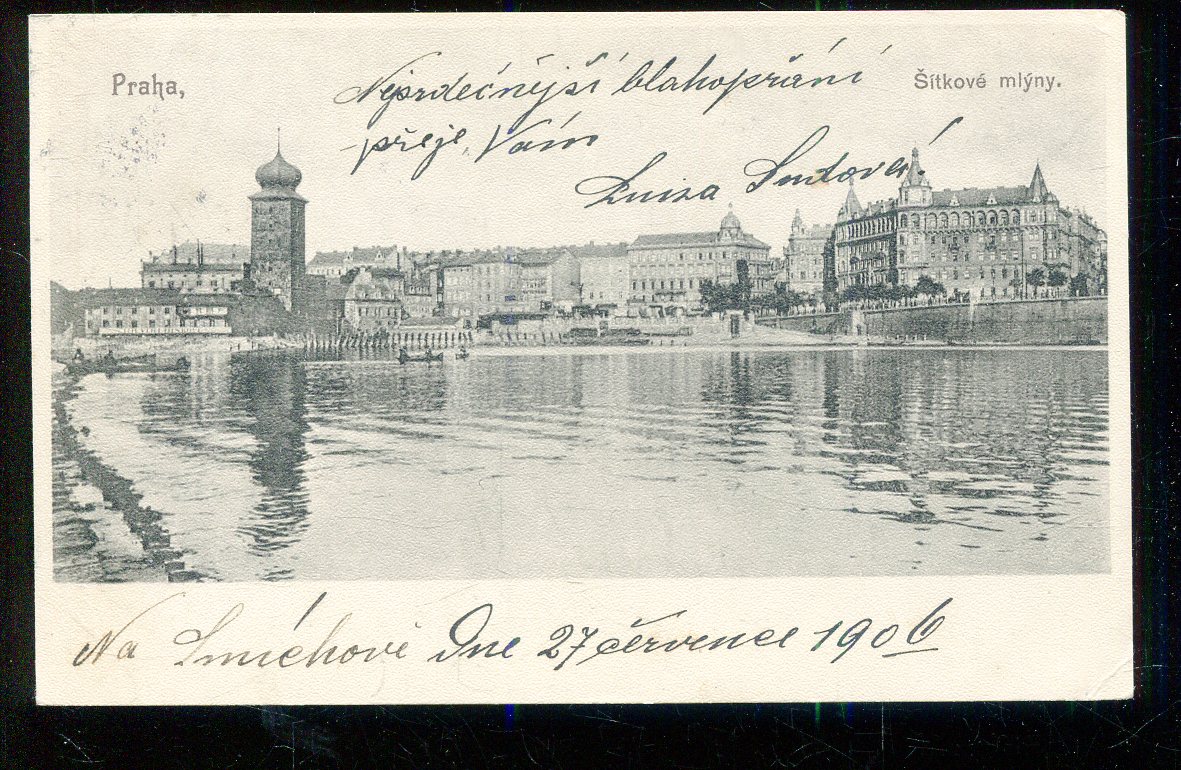 Praha,
Šítkové mlýny.
Nejsrdečnější blahopřání
přeje, Vám
Luisa
Na Smíchově Dne 27 července 1906